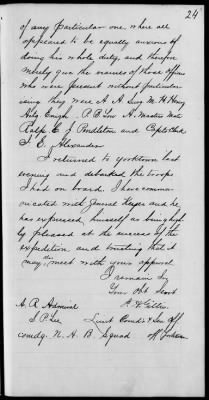 24
of any particular one, where all
appeared to be equally anxious of
doing his whole duty, and therefore
merely give the names of those officers
who were present without particular-
izing they were A. A. Surg M. H. Henry
Actg Ensign P. B. Low A. Masters Mate
Ralph E J Pendleton and Capts Clerk
J. E. Alexander
I returned to Yorktown last
evening and debarked the troops
I had on board. I have commu-
nicated with General Keyes and he
has expressed himself as being high-
ly pleased at the success of the
expedition, and trusting that it
may this meet with your approval
I remain Sir
Your Obt Servt
A. R. Admiral
S. P. Lee
Lieut Comd'r & Sen Off
comdg. N. A. B. Squad